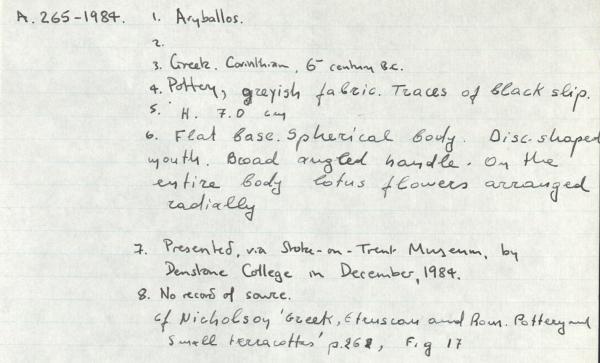 A. 265-1984. 1. Aryballos.
2.
3. Greek. Corinthian, 6 century B.C.
4. Pottery, greyish fabric. Traces of black slip.
5. H. 7.0 cm
6. Flat base. Spherical body. Disc-shaped
mouth. Broad angled handle. On the
entire body lotus flowers arranged
radially
7. Presented, via Stoke-on-Trent Museum, by
Denstone College in December, 1984.
8. No record of source.
cf Nicholson 'Greek, Etruscan and Rom. Pottery and
Small terracottas' p.262, Fig 17